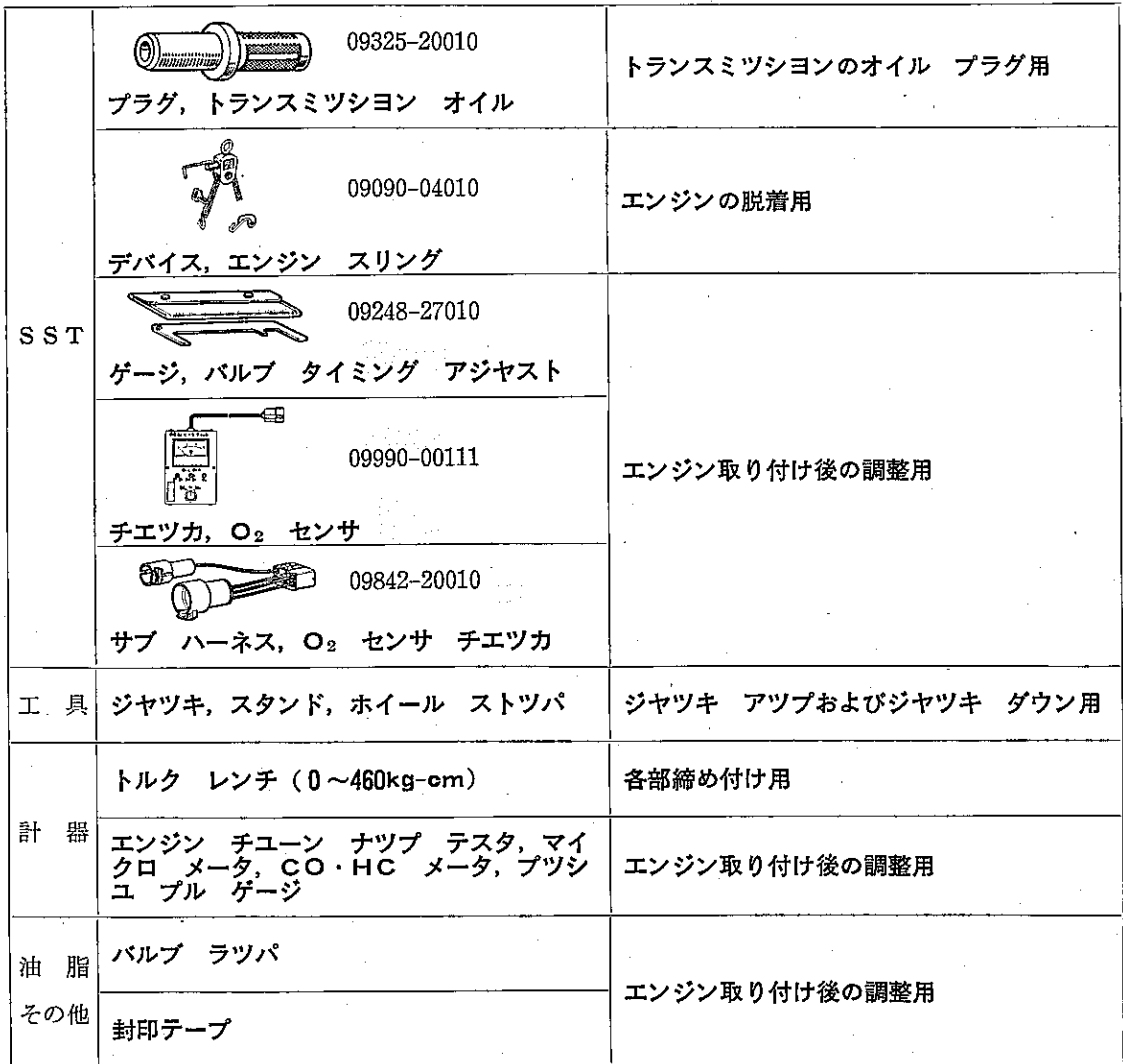 SST
09325-20010
プラグ, トランスミツシヨン オイル
トランスミツシヨンのオイル プラグ用
09090-04010
デバイス, エンジン スリング
エンジンの脱着用
09248-27010
ゲージ, バルブ タイミング アジヤスト
09990-00111
チエツカ, O₂ センサ
09842-20010
サブ ハーネス, O₂ センサ チエツカ
エンジン取り付け後の調整用
工 具
ジヤツキ, スタンド, ホイール ストツパ
ジヤツキ アツプおよびジヤツキ ダウン用
計 器
トルク レンチ (0～460kg-cm)
各部締め付け用
エンジン チユーン ナツプ テスタ, マイ
クロ メータ, CO・HC メータ, プツシ
ユ プル ゲージ
エンジン取り付け後の調整用
油 脂
その他
バルブ ラツパ
封印テープ
エンジン取り付け後の調整用